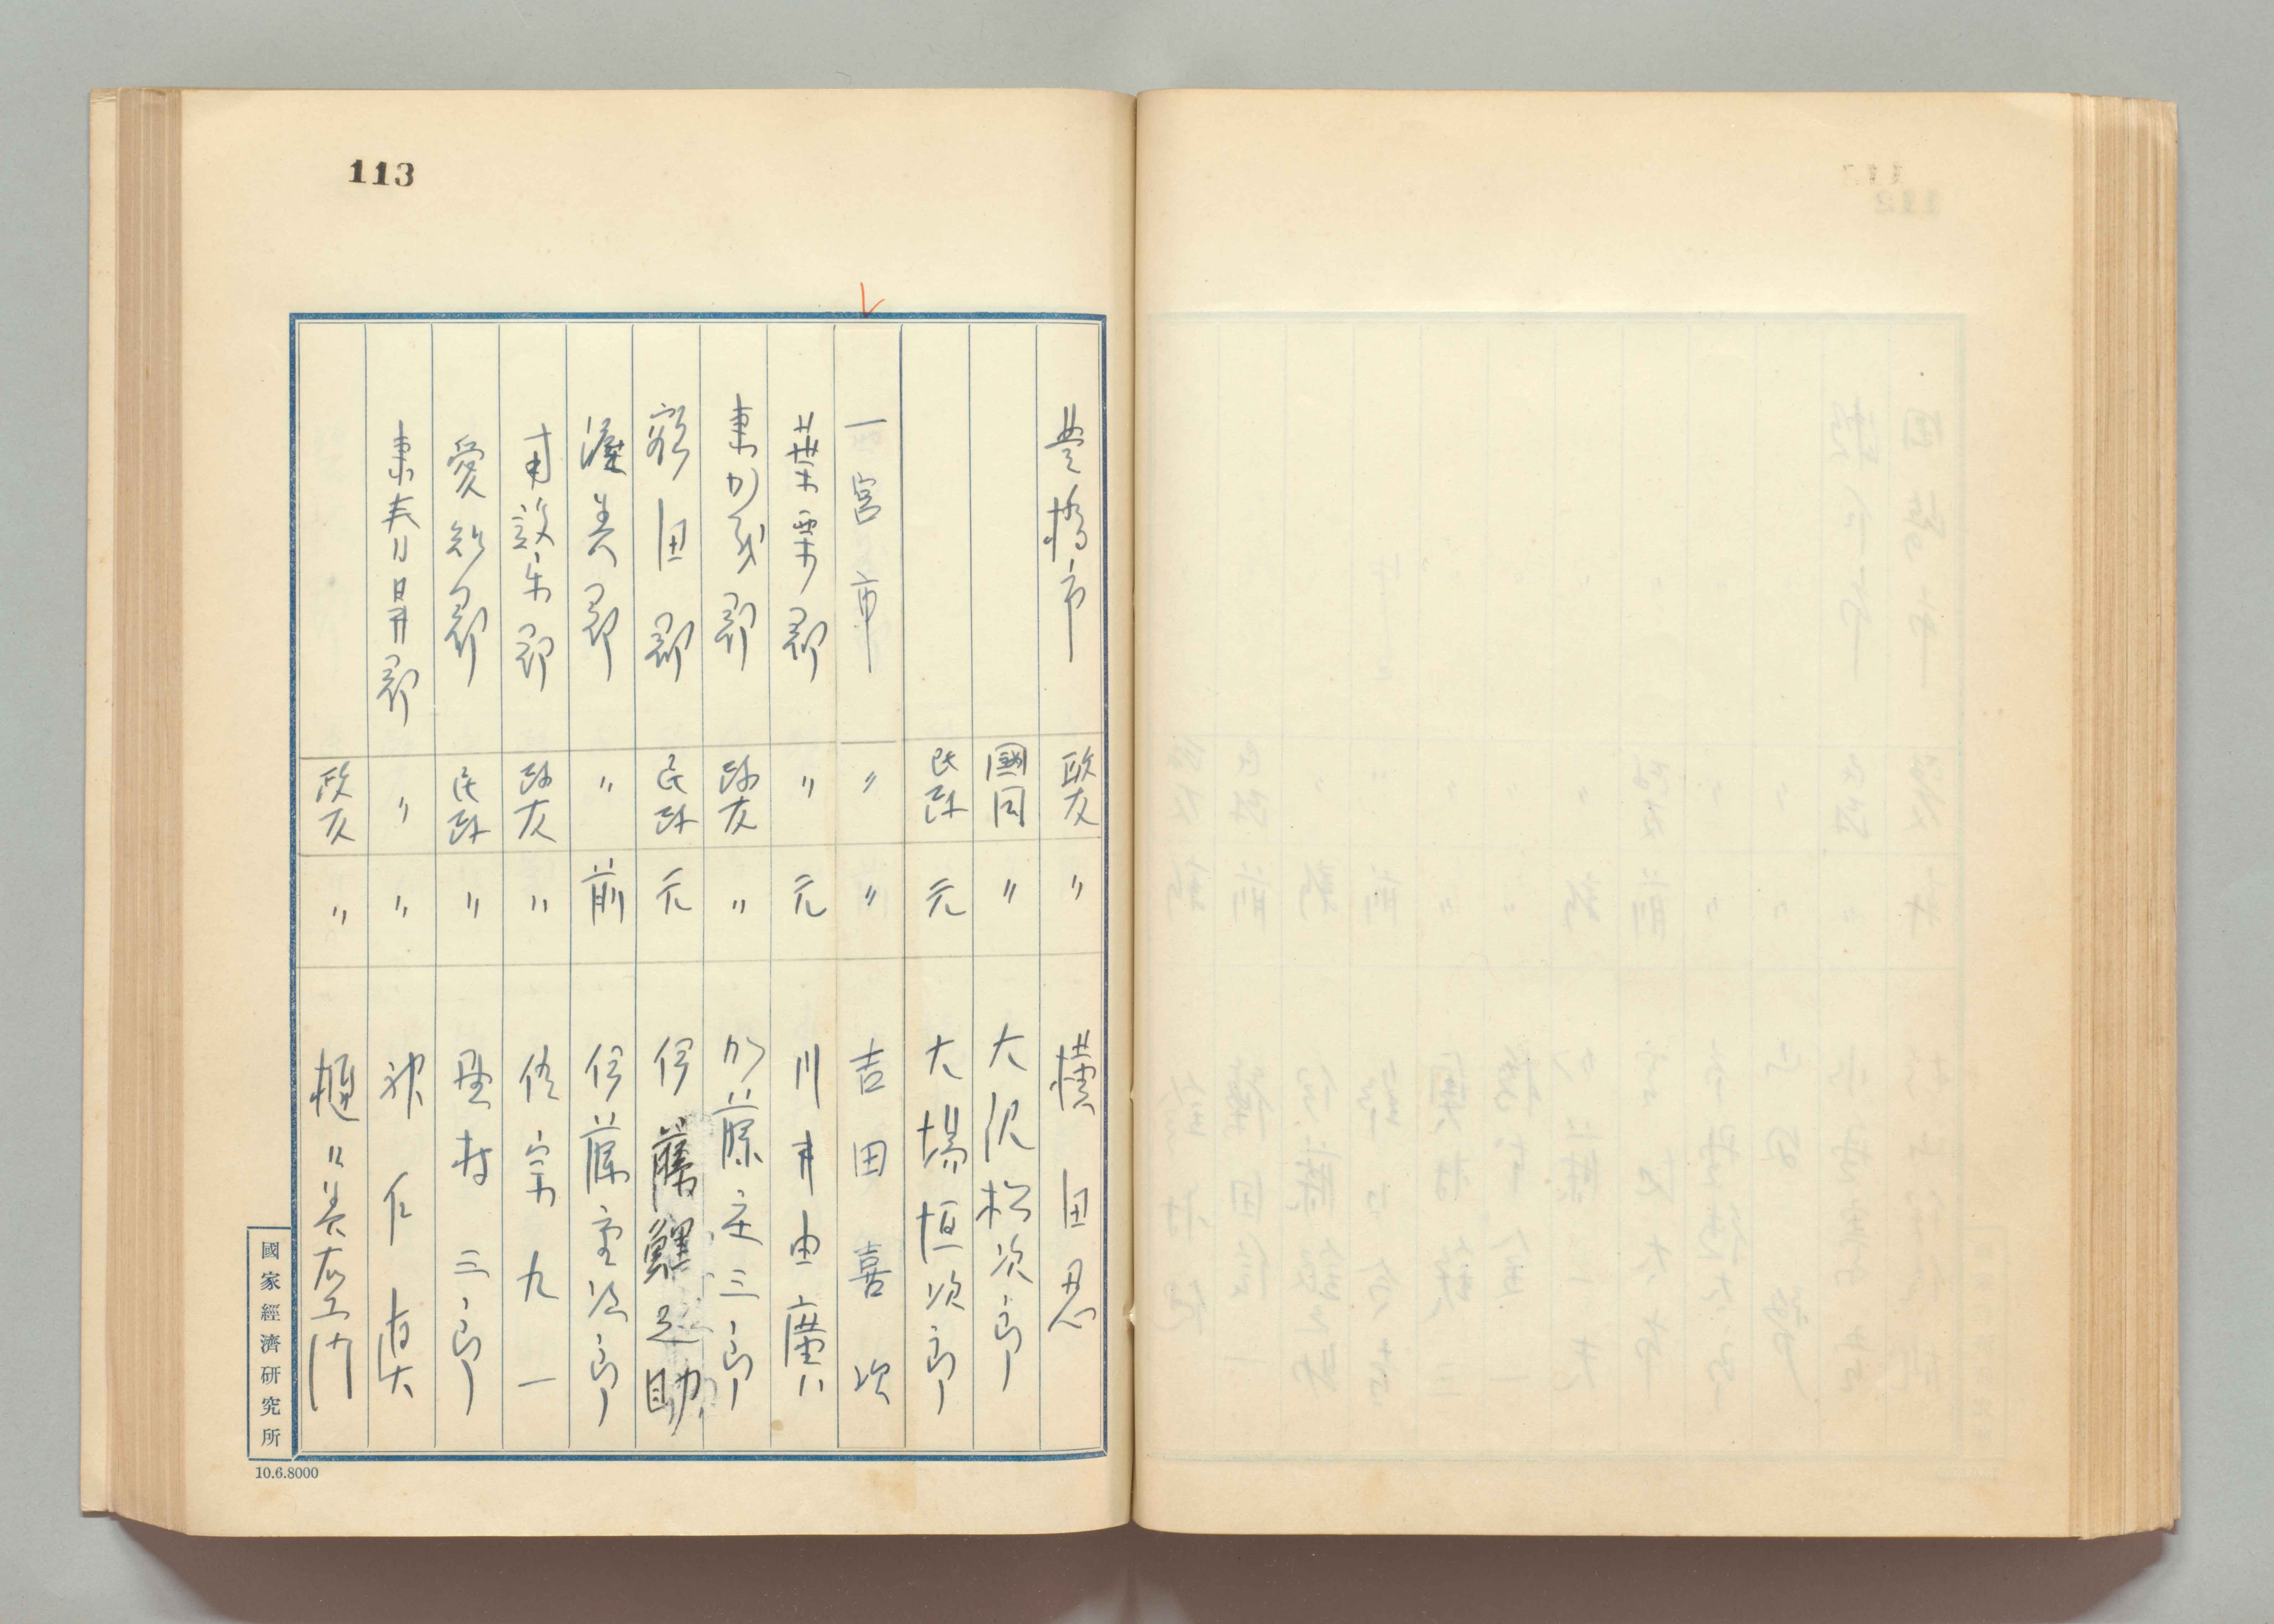 113
豊橋市 政友 〃 横田忍
國同 〃 大沢松次郎
民政 元 大場恒次郎
一宮市 〃 〃 吉田喜次
葉栗郡 〃 元 川井由廣
東加茂郡 政友 〃 加藤庄三郎
額田郡 民政 元 伊藤鯉之助
渥美郡 〃 前 伊藤
南設楽郡 政友 〃 佐宗九一
愛知郡 民政 〃 野村三郎
東春日井郡 〃 〃
政友 〃
國家經濟研究所
10.6.8000